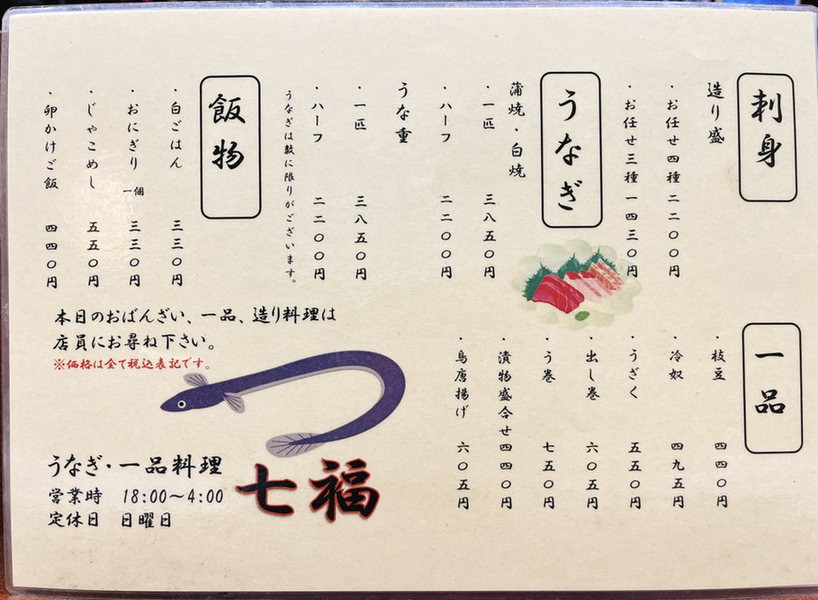 刺身
造り盛
・お任せ四種 二二〇〇円
・お任せ三種 一四三〇円
うなぎ
蒲焼・白焼
・一匹 三八五〇円
・ハーフ 二二〇〇円
うな重
・一匹 三八五〇円
・ハーフ 二二〇〇円
うなぎは数に限りがございます。
飯物
・白ごはん 三三〇円
・おにぎり 一個 三三〇円
・じゃこめし 五五〇円
・卵かけご飯 四四〇円
一品
・枝豆 四四〇円
・冷奴 四九五円
・うざく 五五〇円
・出し巻 六〇五円
・う巻 七五〇円
・漬物盛合せ 四四〇円
・鳥唐揚げ 六〇五円
本日のおばんざい、一品、造り料理は
店員にお尋ね下さい。
※価格は全て税込表記です。
うなぎ・一品料理
七福
営業時 18:00～4:00
定休日 日曜日